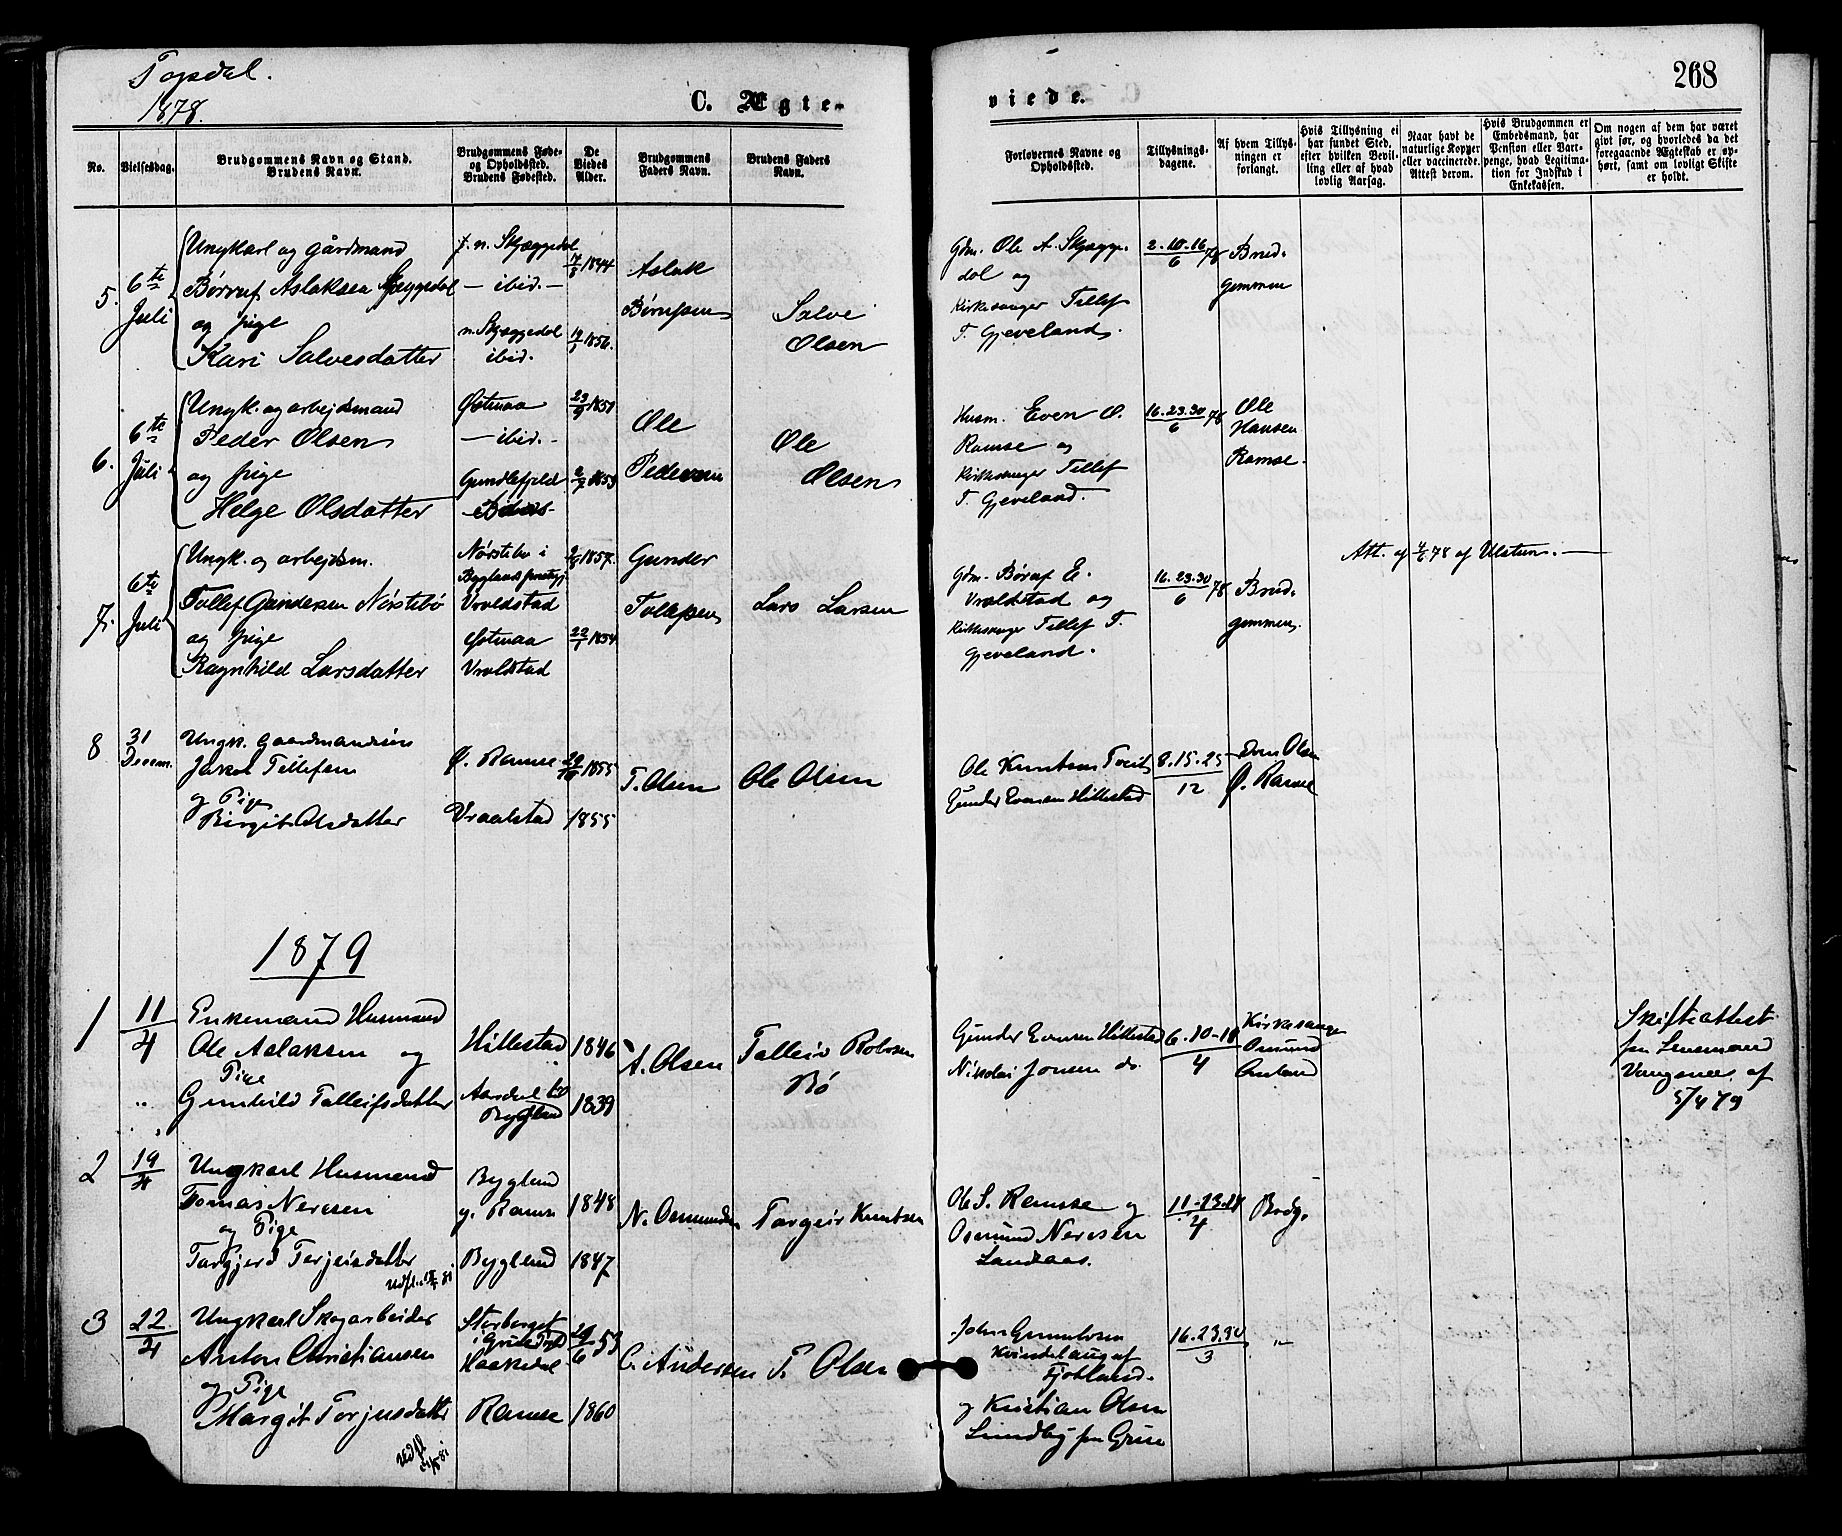 Topsdal.
1878.
C. Ægte-
No.
Vielsesdag.
Brudgommens Navn og Stand.
Brudens Navn.
Brudgommens Føde-
og Opholdssted.
Brudens Fødested.
De
Viedes
Alder.
Brudgommens
Faders Navn.
Brudens Faders
Navn.
5.
6te
Juli
Ungkarl og Gårdmand
Børuf Aslaksen Skjæggedal
og pige
Kari Salvesdatter
f. n. Skjæggedal
— ibid. —
n. Skjæggedal
ibid.
1844
1856.
Aslak
Børufsen
Salve
Olsen
6.
6te
Juli
Ungk. og arbejdsmand
Peder Olsen
og pige
Helge Olsdatter
Østmaa
— ibid. —
Gundlefjeld
23/9 1851
Ole
Pedersen
Ole
Olsen
7.
6te
Juli
Ungk. og arbejdsm.
Tollef Gundersen Nørstebø
og pige
Ragnhild Larsdatter
Nørstebø i
Byglands prestgj
Vraldstad
Østmaa
Vraldstad
1857.
22/1 1854
Gunder
Lars Larsen
8
31
Decem.
Ungk. Gaardmandssøn
Jakob Tellefsen
og Pige
Birgit Olsdatter
Ø. Ramse
Vraalstad
1855
1855
T. Olsen
Ole Olsen
1879
1
11/4
Enkemand Husmand
Ole Aslaksen og
Pige
Gunhild Talleifsdatter
Hillestad
Bygland
1846
1839
A. Olsen
Talleiv
Bø
2
19/4
Ungkarl Husmand
Tomas Neresen
og Pige
Targjerd Terjeisdatter
Bygland
y. Ramse
Bygland
1848
1847
N. Osmundsen
Targeir Knutsen
3
22/4
Ungkarl Skogarbeider
Anton Christiansen
og Pige
Margit Torjusdatter
Storberget
i Grue
Haakedal
Ramse
29/6 53
1860
C. Andersen
T. Olsen
viede.
268
Forlovernes Navne og
Opholdssted.
Tillysnings-
dagene.
Af hvem Tillys-
ningen er
forlangt.
Hvis Tillysning ei
har fundet Sted,
efter hvilken Bevil-
ling eller af hvad
lovlig Aarsag.
Naar havt de
naturlige Kopper
eller vaccinerede.
Attest derom.
Hvis Brudgommen er
Embedsmand, har
Pension eller Var-
tpenge, hvad Legitima-
tion for Indskud i
Enkekassen.
Om nogen af dem har været
givt før, og hvorledes da det
foregaaende Ægteskab er op-
hørt, samt om lovligt Skifte
er holdt.
Gdm. Ole A. Skjægge-
dal og
Kirkesanger Tellef
T. Gjeveland.
2.-10.-16/6 78
Brud-
gommen
Husm. Even O.
Ramse og
Kirkesanger Tellef
T. Gjeveland.
16.-23.30/6 78
Ole
Hansen
Ramse.
Gdm. Børuf E.
Vraldstad og
Kirkesanger Tellef T.
Gjeveland.
16.23.30/6 78
Brud-
gommen.
Att. af 4/6 78 af Ulstun. —
Ole Knutsen Tveit
Gunder Evensen Hillestad
8.15.25/12
Even Olsen
Ø. Ramse
Gunder Evensen Hillestad
Nikolai Jonsen do.
6-10-18/4
Kirkesanger
Osmund
Skifteattest
fra Lensmand
af
5/4 79
Ole S. Ramse og
Osmund Neresen
Landaas.
11-13-21/4
Brdg.
John Gunulvsen
Kvindelaug af
Fjotland.
og Kristian Olsen
Lundby fra Grue
16.23.30/3
„